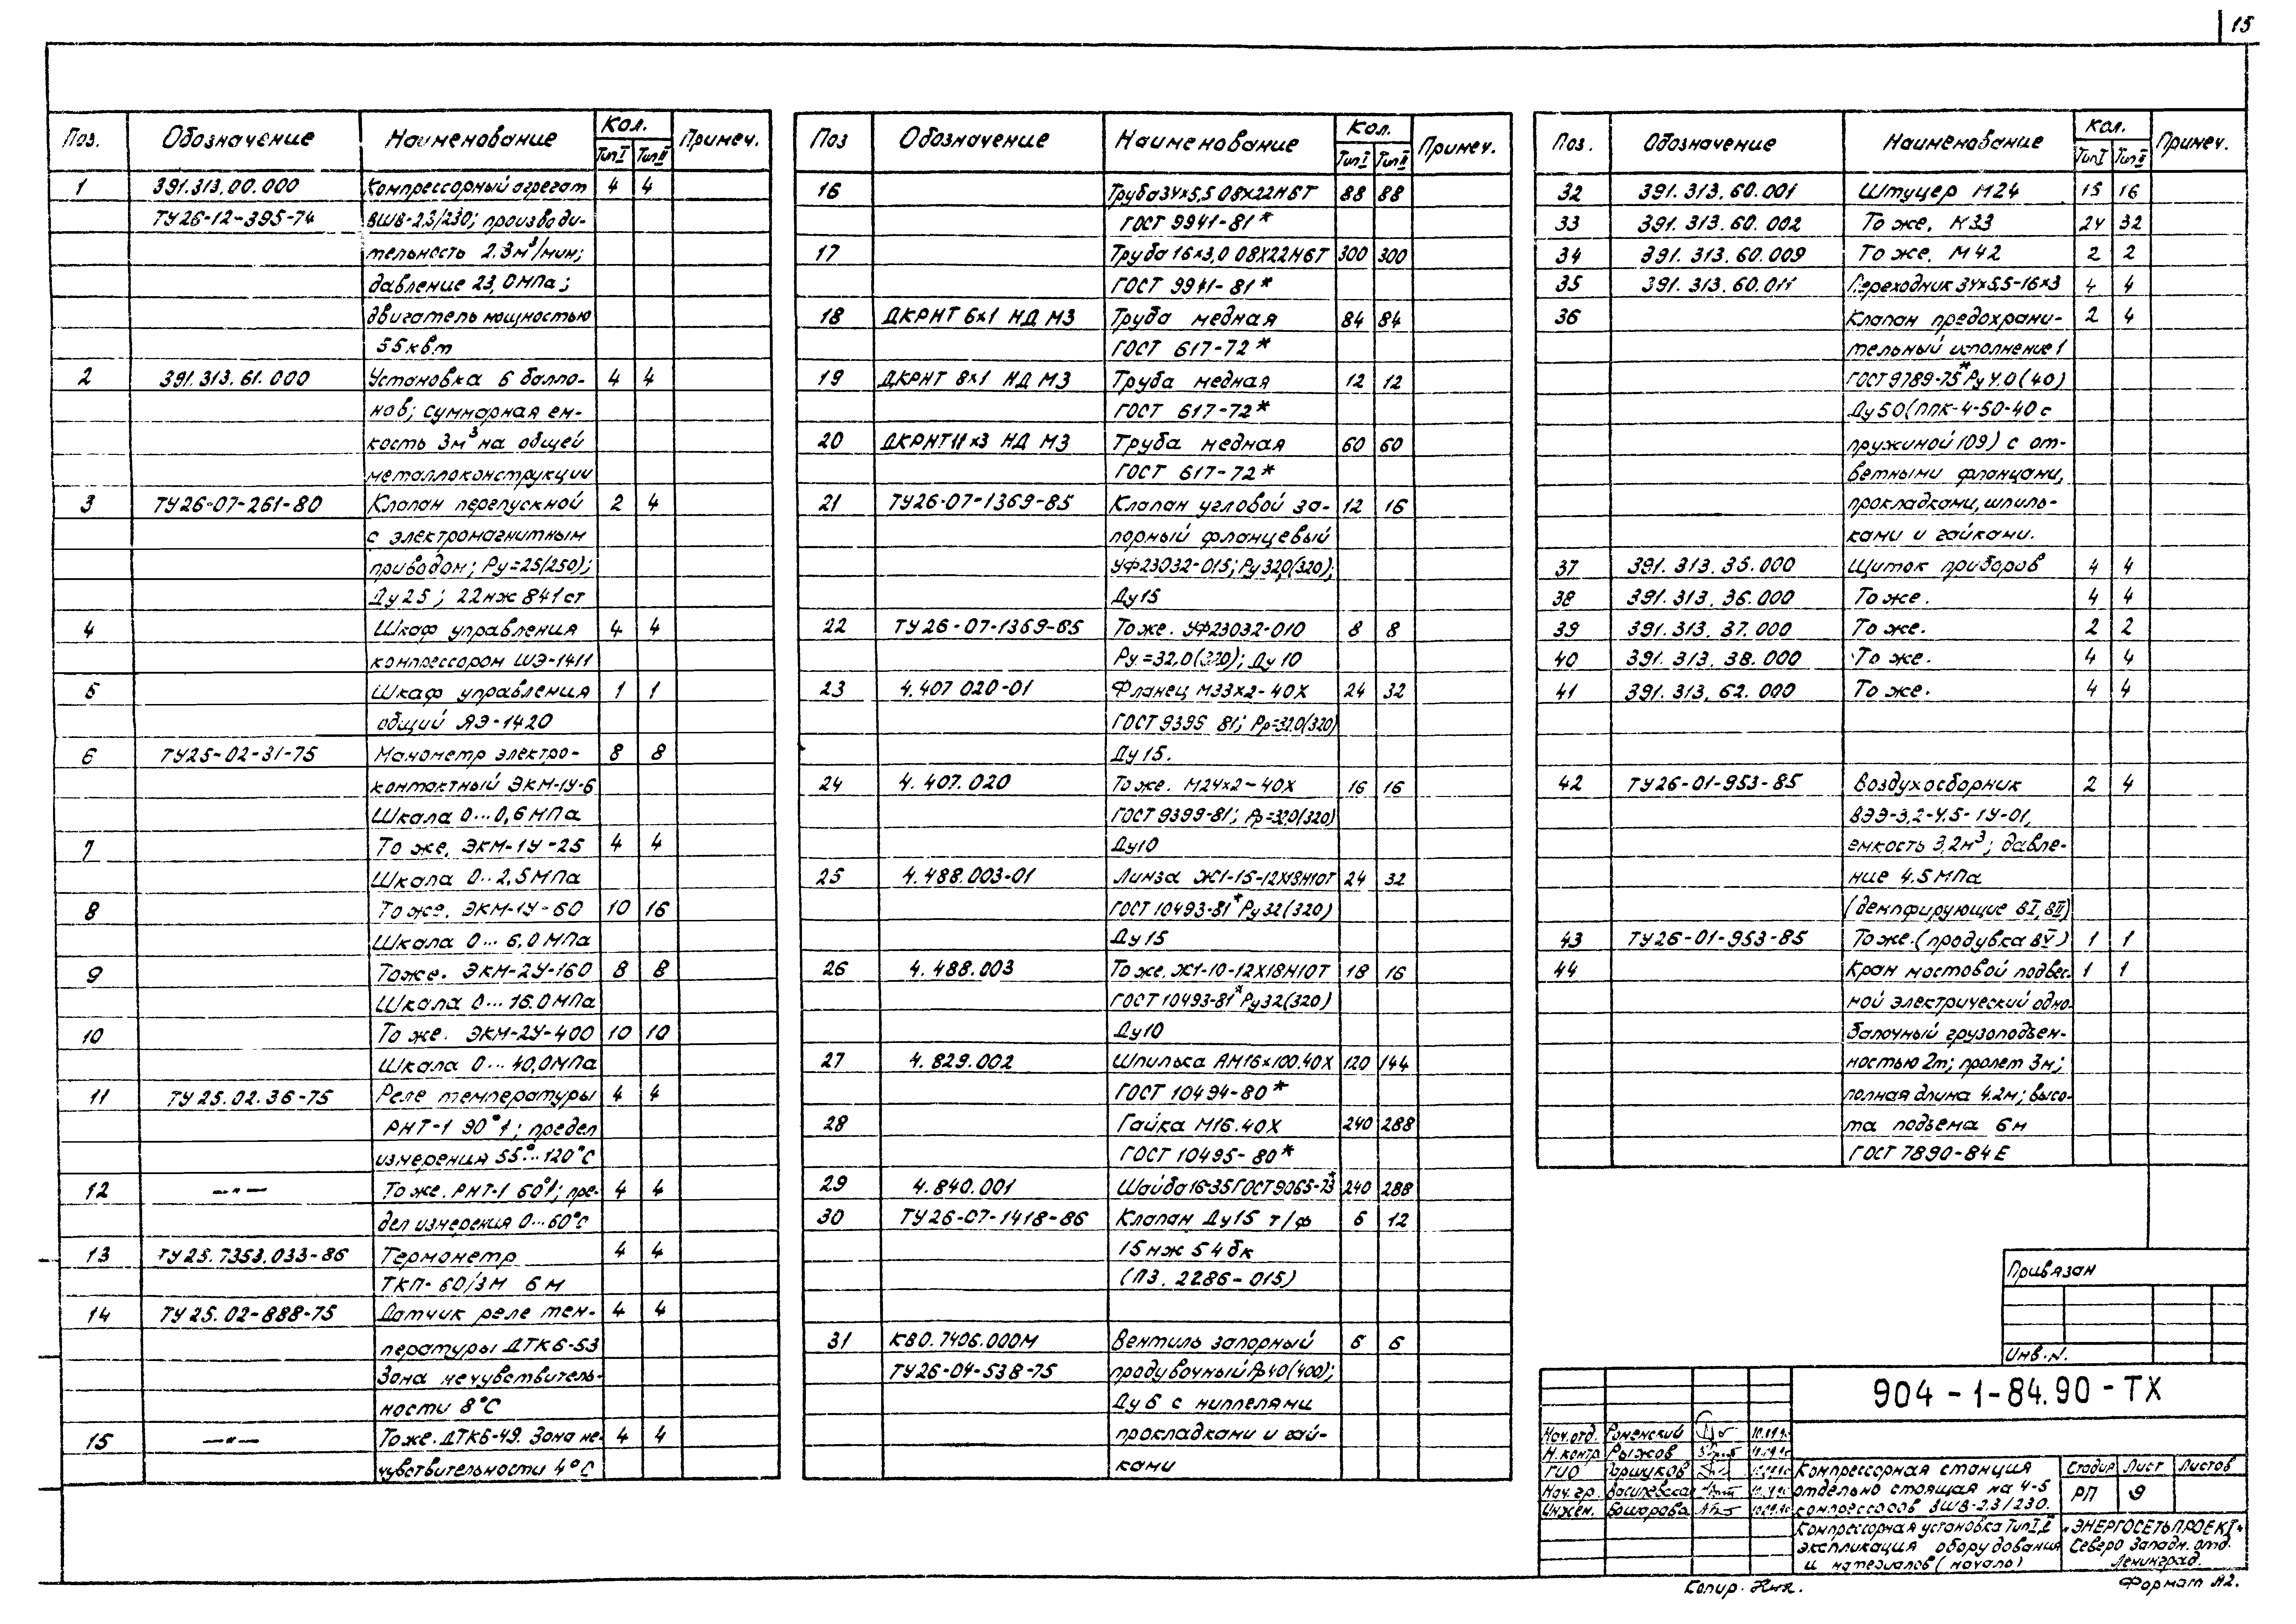 15
Поз. Обозначение Наименование Кол. Примеч.
Тип I Тип II
1 391.313.00.000 Компрессорный агрегат 4 4
ТУ26-12-395-74 ВШВ-2,3/230; производи-
тельность 2.3м³/мин;
давление 23,0МПа;
двигатель мощностью
55квт
2 391.313.61.000 Установка 6 балло- 4 4
нов; суммарная ем-
кость 3м³ на общей
металлоконструкции
3 ТУ26-07-261-80 Клапан перепускной 2 4
с электромагнитным
приводом; Ру=25(250);
Ду25; 22нж841ст
4 Шкаф управления 4 4
компрессором ШЭ-1411
5 Шкаф управления 1 1
общий ЯЭ-1420
6 ТУ25-02-31-75 Манометр электро- 8 8
контактный ЭКМ-1У-6
Шкала 0...0,6МПа
7 То же, ЭКМ-1У-25 4 4
Шкала 0..2,5МПа
8 То же. ЭКМ-1У-60 10 16
Шкала 0...6,0МПа
9 То же. ЭКМ-2У-160 8 8
Шкала 0...16.0МПа
10 То же. ЭКМ-2У-400 10 10
Шкала 0...40,0МПа
11 ТУ25.02.36-75 Реле температуры 4 4
РНТ-1 90°1; предел
измерения 55°...120°С
12 —"— То же. РНТ-1 60°1; пре- 4 4
дел измерения 0...60°С
13 ТУ25.7353.033-86 Термометр 4 4
ТКП-60/3М 6м
14 ТУ25.02-888-75 Датчик реле тем- 4 4
пературы ДТКБ-53
Зона нечувствитель-
ности 8°С
15 —"— То же. ДТКБ-49. Зона не 4 4
чувствительности 4°С
Поз Обозначение Наименование Кол. Примеч.
Тип I Тип II
16 Труба 34×5,5 08Х22Н6Т 88 88
ГОСТ 9941-81*
17 Труба 16×3,0 08Х22Н6Т 300 300
ГОСТ 9941-81*
18 ДКРНТ 6×1 НД М3 Труба медная 84 84
ГОСТ 617-72*
19 ДКРНТ 8×1 НД М3 Труба медная 12 12
ГОСТ 617-72*
20 ДКРНТ 11×3 НД М3 Труба медная 60 60
ГОСТ 617-72*
21 ТУ26-07-1369-85 Клапан угловой за- 12 16
порный фланцевый
УФ23032-015; Ру32,0(320);
Ду15
22 ТУ26-07-1369-85 То же. УФ23032-010 8 8
Ру=32,0(320); Ду10
23 4.407 020-01 Фланец М33×2-40Х 24 32
ГОСТ 9399 81; Рр=32.0(320)
Ду15.
24 4.407.020 То же. М24×2-40Х 16 16
ГОСТ 9399-81; Рр=32.0(320)
Ду10
25 4.488.003-01 Линза Ж1-15-12Х18Н10Т 24 32
ГОСТ 10493-81* Ру32(320)
Ду15
26 4.488.003 То же. Ж1-10-12Х18Н10Т 18 16
ГОСТ 10493-81* Ру32(320)
Ду10
27 4.829.002 Шпилька АМ16×100.40Х 120 144
ГОСТ 10494-80*
28 Гайка М16.40Х 240 288
ГОСТ 10495-80*
29 4.840.001 Шайба 16-35 ГОСТ 9065-73* 240 288
30 ТУ26-07-1418-86 Клапан Ду15 т/ф 6 12
15нж54бк
(ПЗ.2286-015)
31 КВО.7406.000М Вентиль запорный 6 6
ТУ26-04-538-75 продувочный Рр40(400);
Ду6 с ниппелями
прокладками и гай-
ками
Поз. Обозначение Наименование Кол. Примеч.
Тип I Тип II
32 391.313.60.001 Штуцер М24 15 16
33 391.313.60.002 То же. М33 24 32
34 391.313.60.009 То же. М42 2 2
35 391.313.60.011 Переходник 34×5.5-16×3 4 4
36 Клапан предохрани- 2 4
тельный исполнение 1
ГОСТ 9789-75* Ру4.0(40)
Ду50(ППК-4-50-40 с
пружиной 109) с от-
ветными фланцами,
прокладками, шпиль-
ками и гайками.
37 391.313.35.000 Щиток приборов 4 4
38 391.313.36.000 То же. 4 4
39 391.313.37.000 То же. 2 2
40 391.313.38.000 То же. 4 4
41 391.313.62.000 То же. 4 4
42 ТУ26-01-953-85 Воздухосборник 2 4
ВЭЭ-3,2-4.5-1У-01,
емкость 3,2м³; давле-
ние 4.5МПа
(демпфирующие ВI, ВII)
43 ТУ26-01-953-85 То же. (продувка ВV) 1 1
44 Кран мостовой подвес- 1 1
ной электрический одно-
балочный грузоподъем-
ностью 2т; пролет 3м;
полная длина 4.2м; высо-
та подъема 6м
ГОСТ 7890-84Е
Привязан
Инв.н.
904-1-84.90-ТХ
Нач.отд. Роменский
Н.контр Рыжов
ГИО Горшуков
Нач.гр.
Инжен.
Компрессорная станция
отдельно стоящая на 4-5
компрессоров ВШВ-2.3/230.
Стадия Лист Листов
РП 9
Компрессорная установка Тип I, II
экспликация оборудования
и материалов (начало)
"ЭНЕРГОСЕТЬПРОЕКТ"
Северо Западн. отд.
Ленинград.
Копир.
Формат А2.